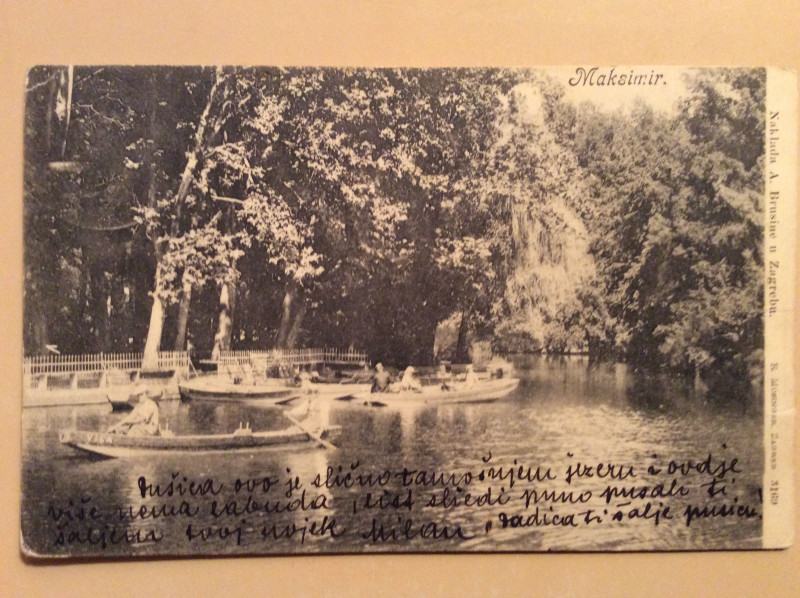 Maksimir.
Nakladа A. Brusine u Zagrebu. R. Mosinger, Zagreb 3169
Dušica ovo je slično tamošnjem jezeru i ovdje
više nema labuda, list sliedi puno pusah ti
šaljem tvoj uvjek Milan, Dadica ti šalje pusicu!